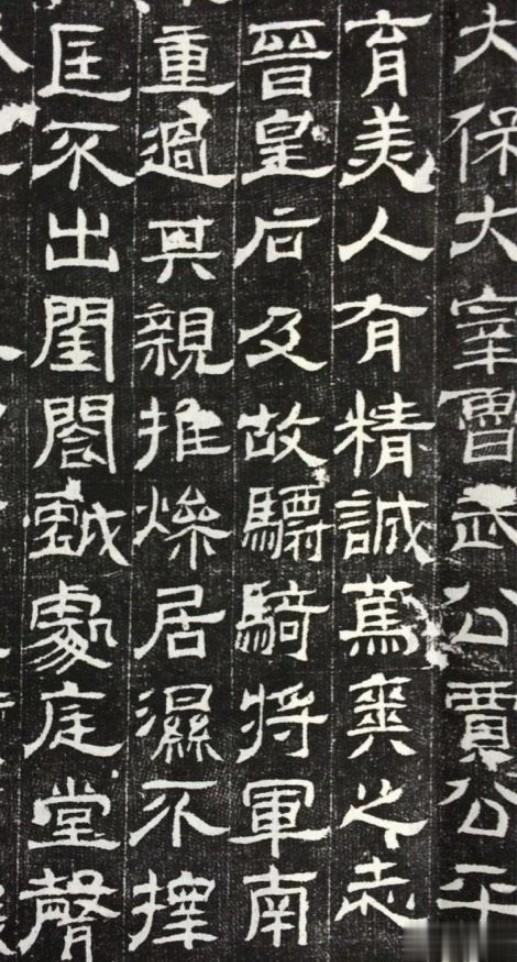 大保大宰魯武公賈公平
育美人有精誠篤爽之志
晉皇后及故驃騎將軍南
重過其親推燥居濕不擇
匡不出閨閤戲處庭堂聲